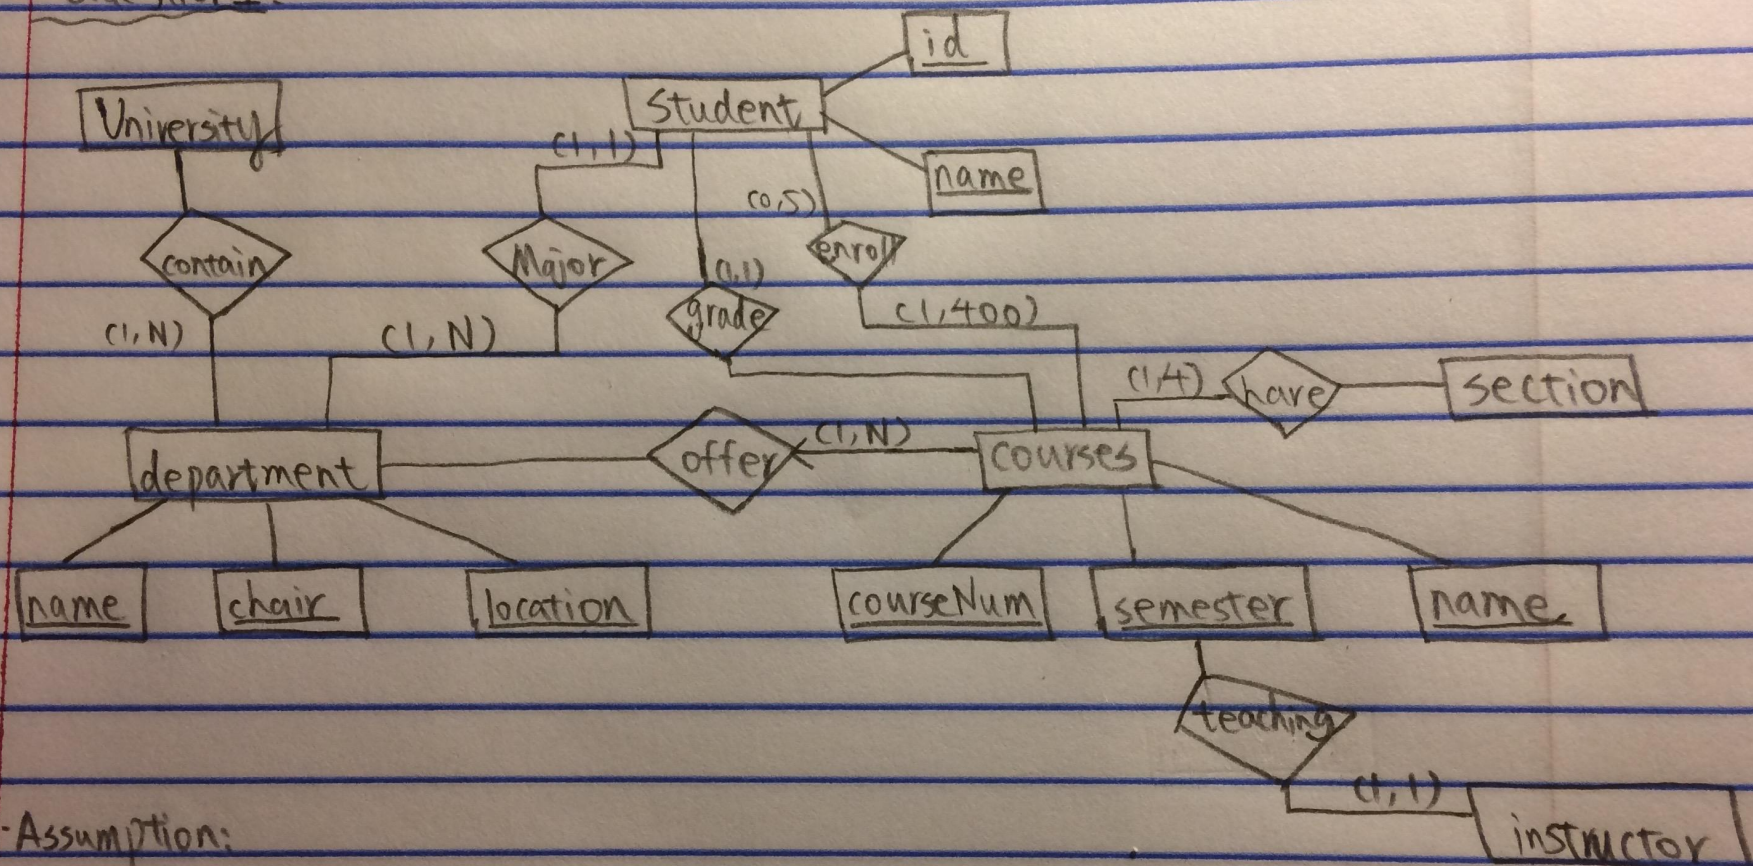 id
University
Student
(1,1)
name
(0,5)
contain
Major
enroll
grade
(1,N)
(1,N)
(1,400)
(1,4)
have
section
department
offer
(1,N)
courses
name
chair
location
courseNum
semester
name
teaching
(1,1)
instructor
Assumption: